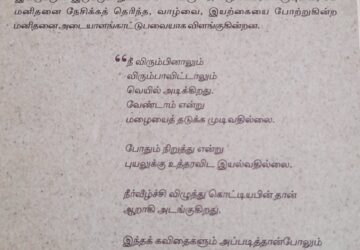 மனிதனை நேசிக்கத் தெரிந்த, வாழ்வை, இயற்கையை போற்றுகின்ற
மனிதனை அடையாளங்காட்டுபவையாக விளங்குகின்றன.
“நீ விரும்பினாலும்
விரும்பாவிட்டாலும்
வெயில் அடிக்கிறது.
வேண்டாம் என்று
மழையைத் தடுக்க முடிவதில்லை.
போதும் நிறுத்து என்று
புயலுக்கு உத்தரவிட இயல்வதில்லை.
நீர்வீழ்ச்சி விழுந்து கொட்டியபின் தான்
ஆறாகி அடங்குகிறது.
இந்தக் கவிதைகளும் அப்படித்தான்போலும்